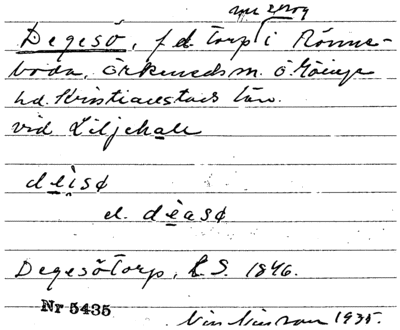 Degesö, f.d. torp i Rönne-
boda, Örkeneds sn. Ö. Göinge
hd. Kristianstads län.
vid Liljehall
dèisø
el. dèasø
Degesötorp, L.S. 1846.
Nr 5435
1935.